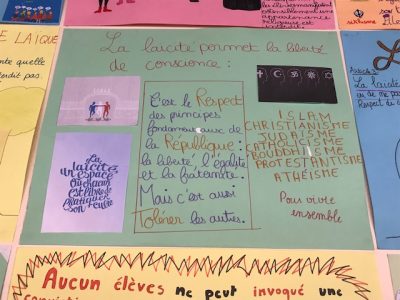 ostensiblement une
appartenance
religieuse est
sikhisme
LAIQUE
quelle
pas.
La laïcité permet la liberté
de conscience :
C'est le Respect
des principes
fondamentaux de
la République :
la liberté, l'égalité
et la fraternité.
Mais c'est aussi
Tolérer les autres.
La
laïcité,
un espace
où chacun
est libre de
pratiquer
son culte
ISLAM
CHRISTIANISME
JUDAISME
CATHOLICISME
BOUDDHICME
PROTESTANTISME
ATHÉISME
Pour vivre
ensemble
Aucun élèves ne peut invoqué une